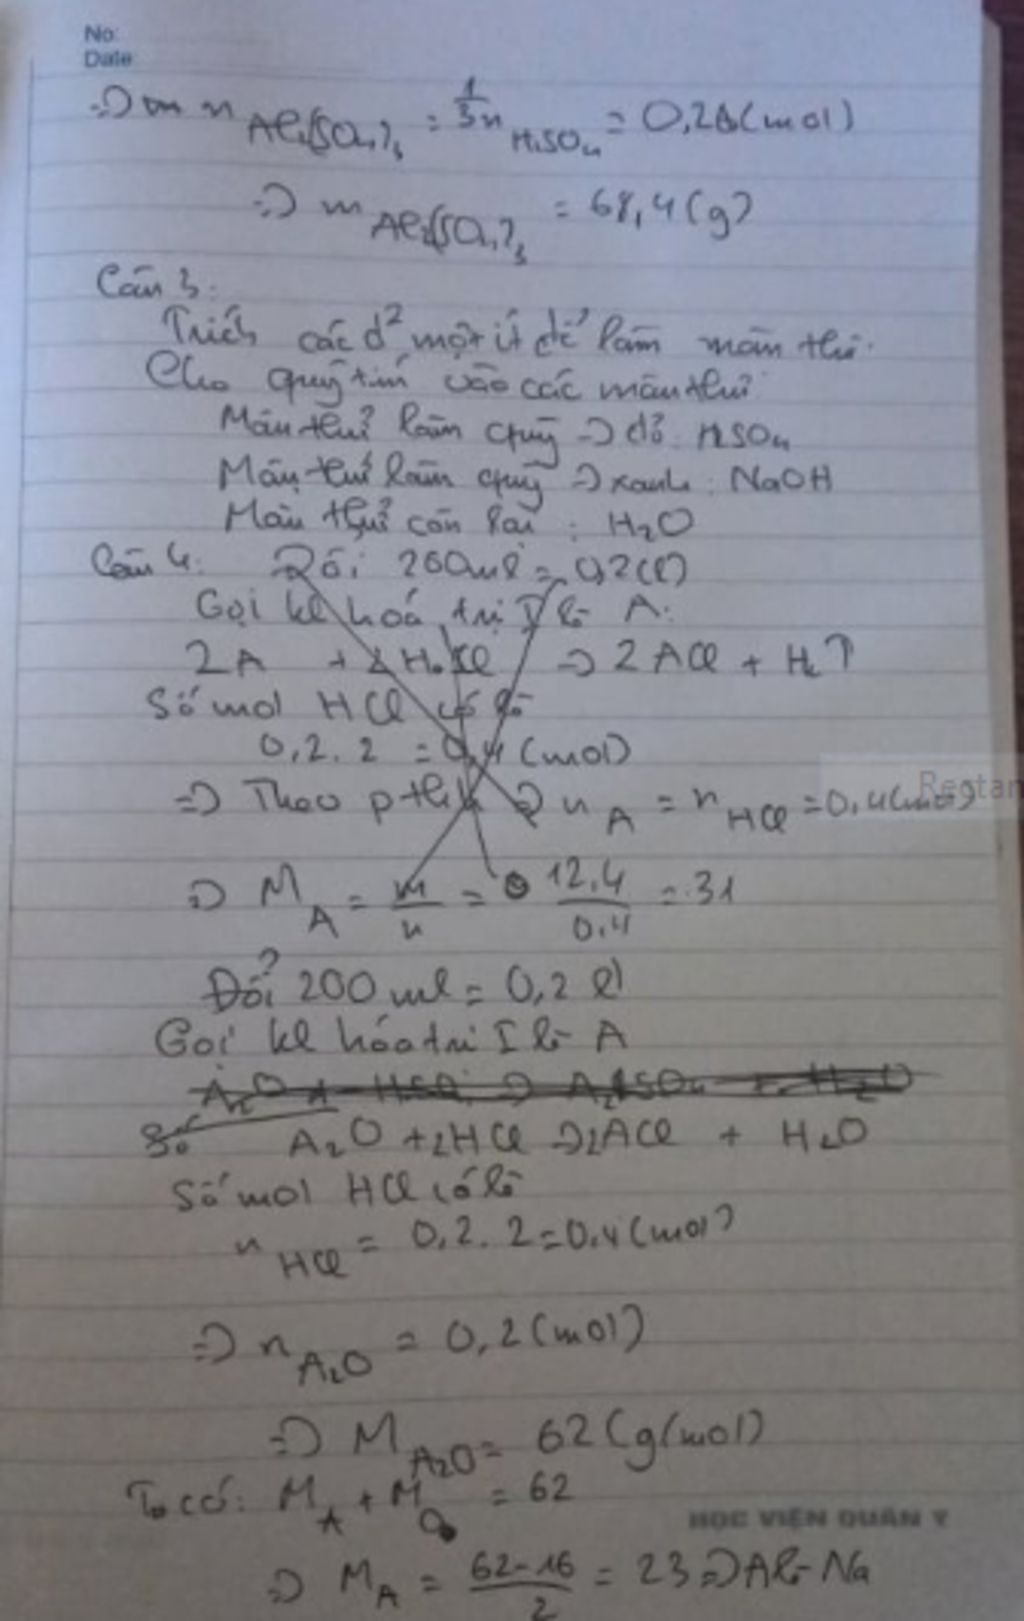 No:
Date
=> n Al2(SO4)3 = 1/3 n H2SO4 = 0,2 (mol)
=> m Al2(SO4)3 = 68,4 (g)
Câu 3:
Trích các d² một ít để làm mẫu thử.
Cho quỳ tím vào các mẫu thử
Mẫu thử làm quỳ => đỏ: H2SO4
Mẫu thử làm quỳ => xanh: NaOH
Mẫu thử còn lại: H2O
Câu 4: Đổi 200ml = 0,2(l)
Gọi kl hoá trị I là A:
2A + 2HCl => 2ACl + H2↑
Số mol HCl có là
0,2.2 = 0,4 (mol)
=> Theo pthh n A = n HCl = 0,4(mol)
Regtan
=> M A = m/n = 12,4/0,4 = 31
Đổi 200ml = 0,2 l
Gọi kl hóa trị I là A
A2O + H2SO4 => A2SO4 + H2O
Số
A2O + 2HCl => 2ACl + H2O
Số mol HCl có là
n HCl = 0,2.2 = 0,4 (mol)
=> n A2O = 0,2 (mol)
=> M A2O = 62 (g/mol)
Ta có: M A + M O = 62
HỌC VIỆN QUÂN Y
=> M A = (62-16)/2 = 23 => A là Na